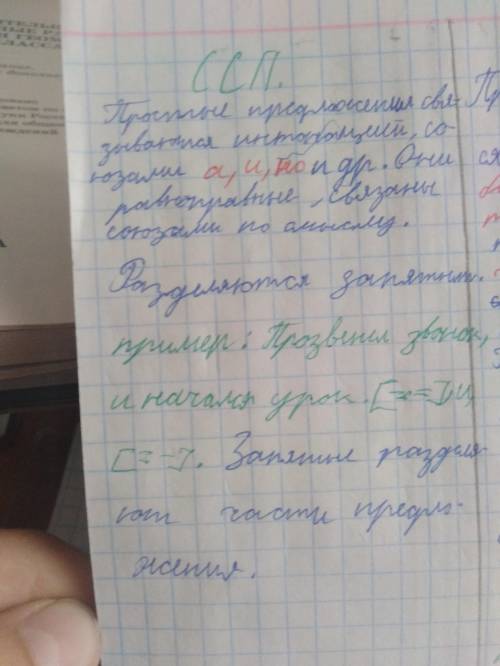 ССП.
Простые предложения свя-
зываются интонацией, со-
юзами а, и, но и др. Они
равноправные, связаны
союзами по смыслу.
Разделяются запятыми.
пример: Прозвенел звонок,
и начался урок. [-=], и
[= -]. Запятые разделя-
ют части предло-
жения.